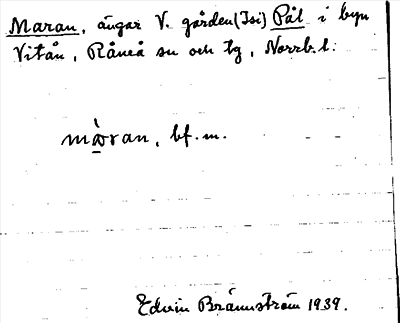 Maran, ängar V. gården (Isi) Pål i byn
Vitån, Råneå sn och tg, Norrb. l.
màran, bf. m.
Edvin Brännström 1939.